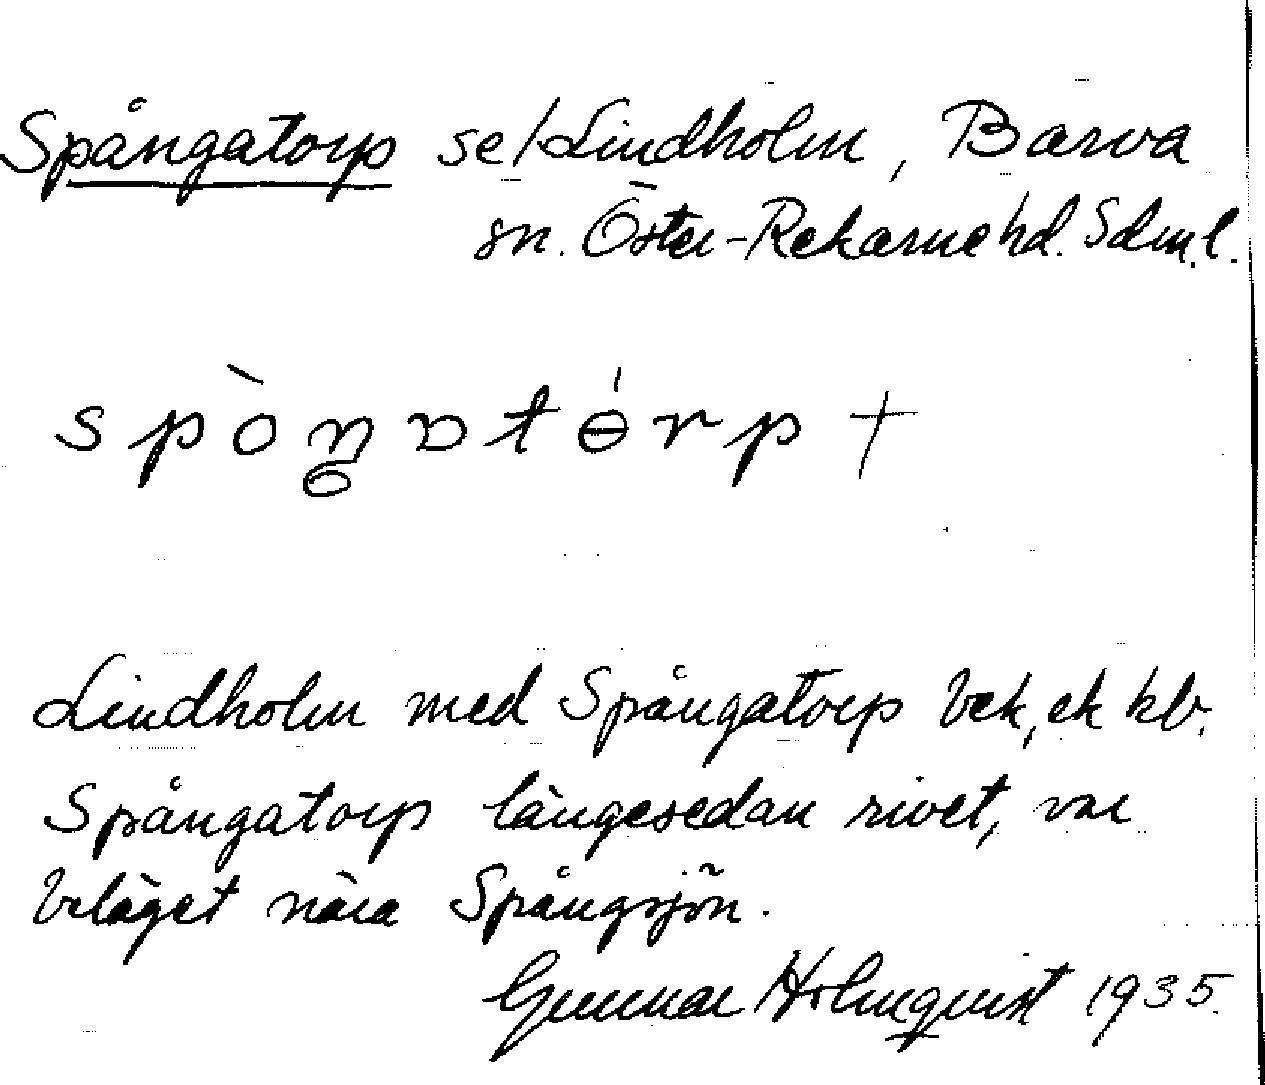 Spångatorp se/Lindholm, Barva
sn. Öster-Rekarne hd. Sdml.
spòŋatɵ́rp †
Lindholm med Spångatorp bek, ek kb.
Spångatorp längesedan rivet, var
beläget nära Spångsjön.
Gunnar Holmquist 1935.